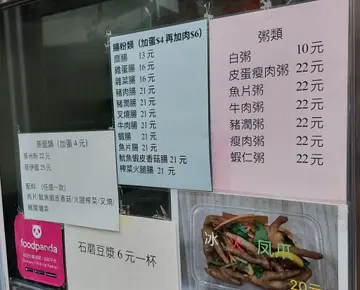 腸粉類（加蛋$4 再加肉$6）
齋腸 13 元
雞蛋腸 16 元
雜菜腸 16 元
豬肉腸 21 元
豬潤腸 21 元
叉燒腸 21 元
牛肉腸 21 元
蝦腸 21 元
魚片腸 21 元
魷魚蝦皮香菇腸 21 元
榨菜火腿腸 21 元
粥類
白粥 10 元
皮蛋瘦肉粥 22 元
魚片粥 22 元
牛肉粥 22 元
豬潤粥 22 元
瘦肉粥 22 元
蝦仁粥 22 元
蒸麵類（加蛋 4 元）
配料：（任選一款）
肉片/魷魚蝦皮香菇/火腿榨菜/叉燒/
foodpanda
石磨豆漿 6 元一杯
冰 火 鳳爪
20元